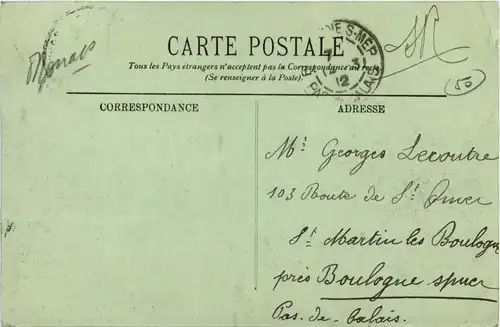 Monaco
CARTE POSTALE
Tous les Pays étrangers n'acceptent pas la Correspondance au recto
(Se renseigner à la Poste)
S-MER
12
CORRESPONDANCE
ADRESSE
Mr Georges Lecoutre
103 Route de St Omer
St Martin les Boulogne
près Boulogne s/mer
Pas-de-Calais.
50